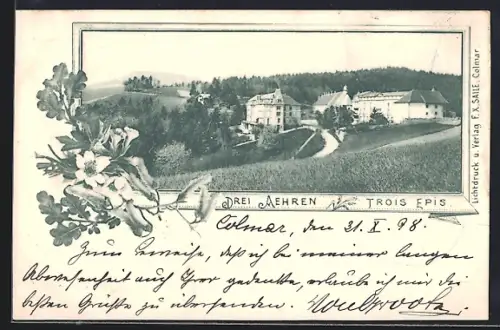 DREI AEHREN
TROIS EPIS
Lichtdruck u. Verlag F. X. SAILE. Colmar
Colmar, den 21. X. 98.
Zum Beweise, daß ich bei meiner langen
Abwesenheit auch Ihrer gedenke, erlaube ich mir die
besten Grüße zu übersenden.